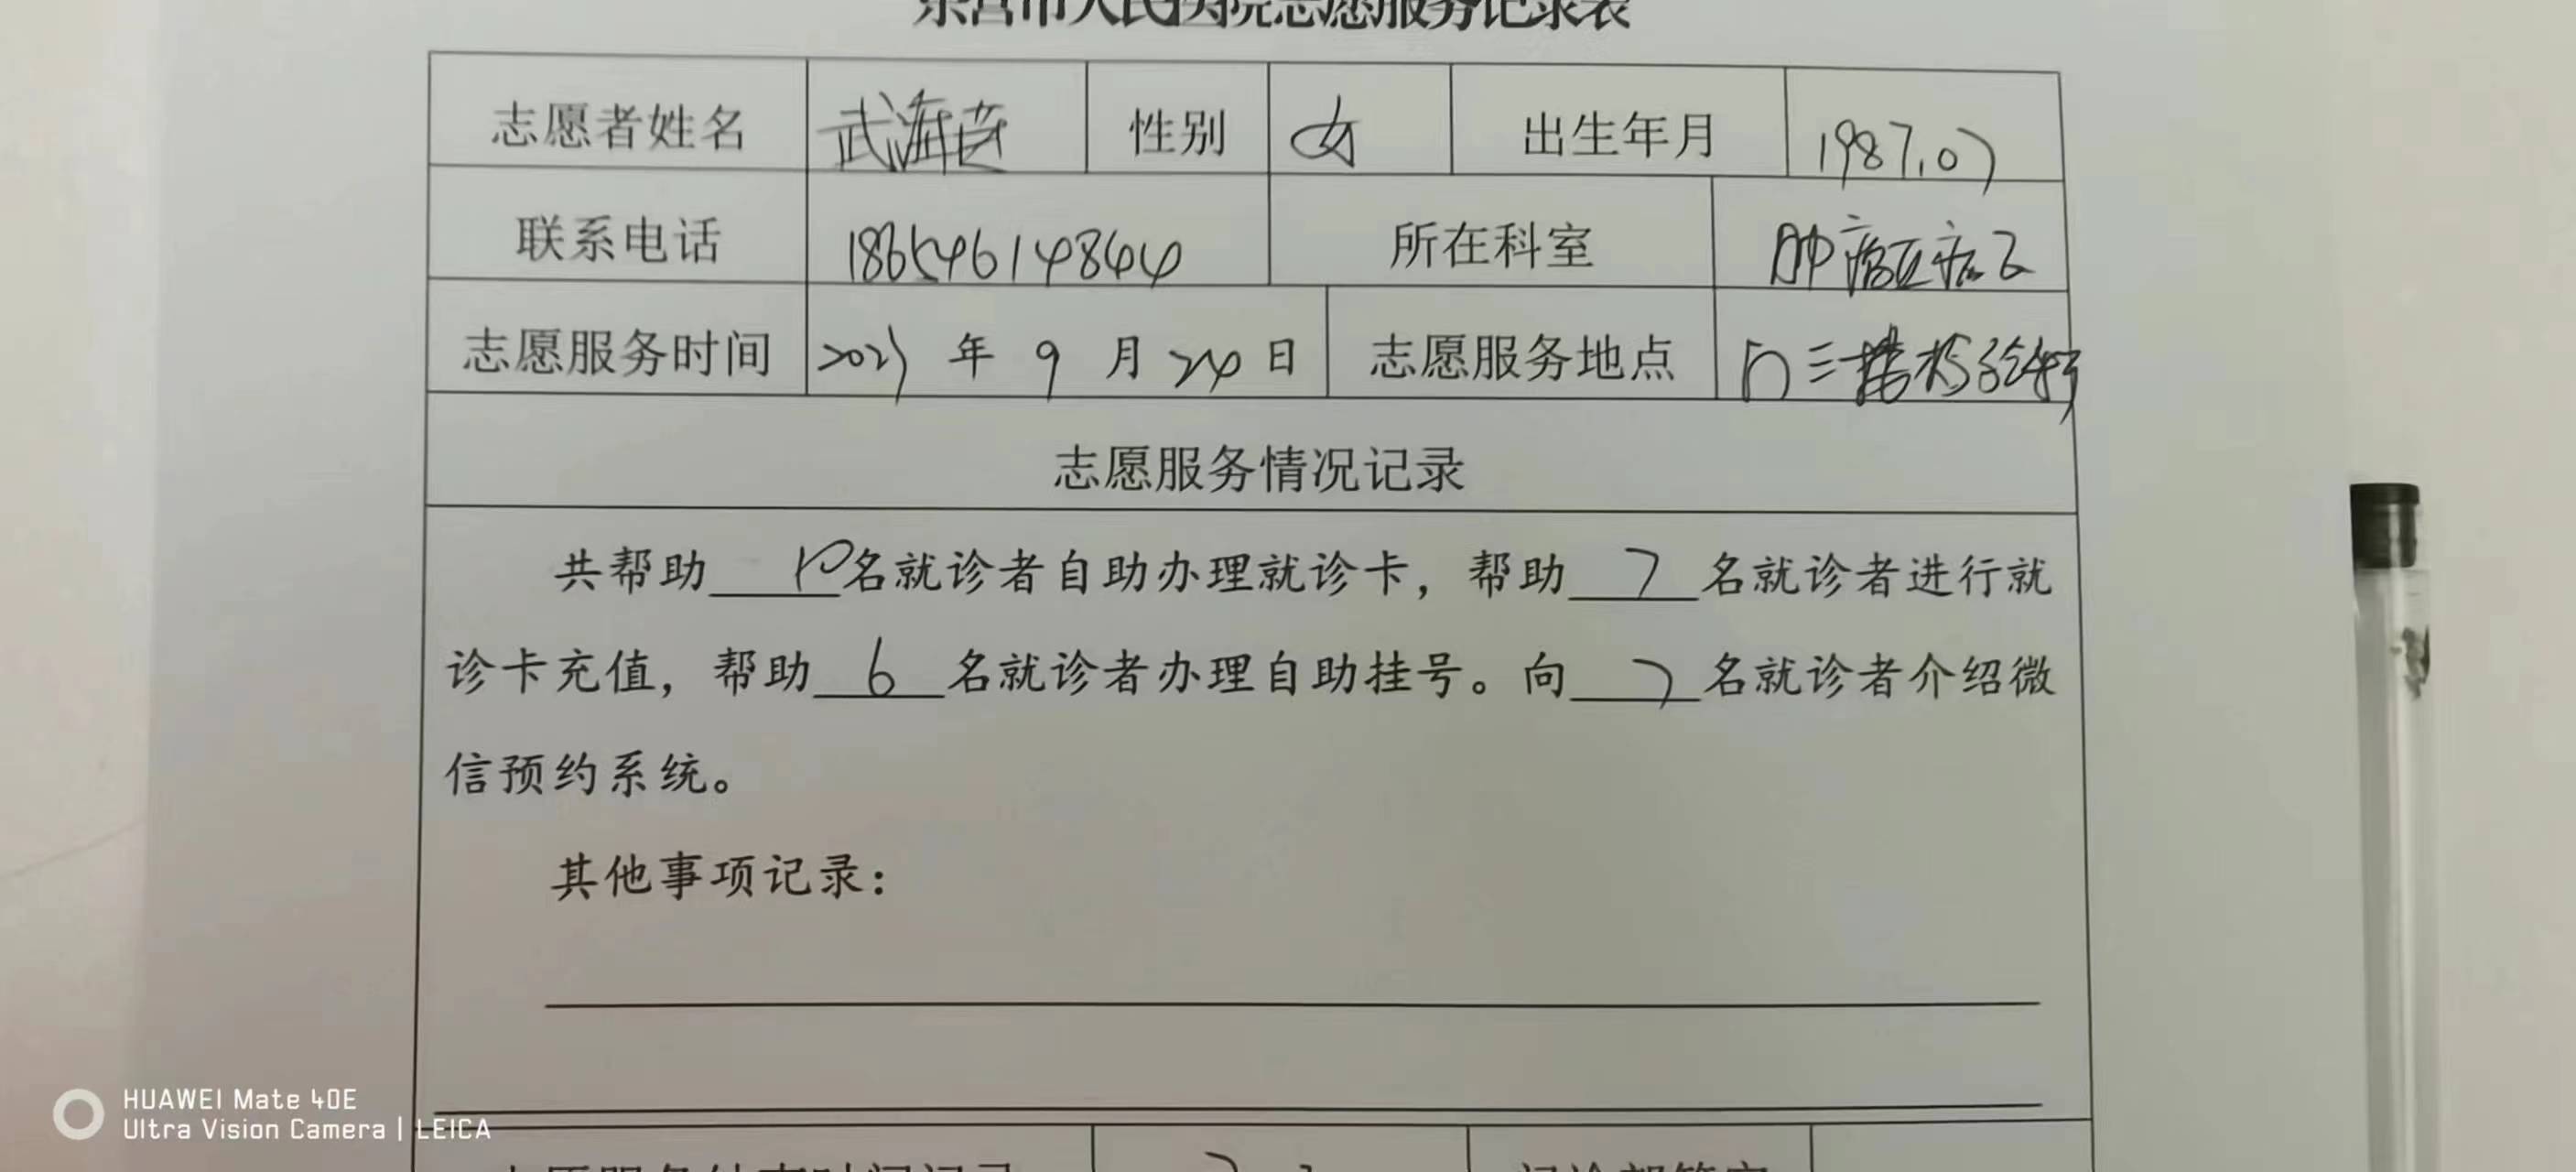 东营市人民医院志愿服务记录表
志愿者姓名 武海 性别 女 出生年月 1987.07
联系电话 18654614844 所在科室 肿瘤
志愿服务时间 2023 年 9 月 24 日 志愿服务地点 门三楼
志愿服务情况记录
共帮助 10 名就诊者自助办理就诊卡，帮助 7 名就诊者进行就
诊卡充值，帮助 6 名就诊者办理自助挂号。向 7 名就诊者介绍微
信预约系统。
其他事项记录：
HUAWEI Mate 40E
Ultra Vision Camera | LEICA